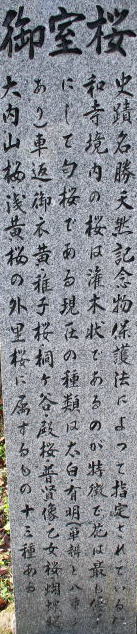 御室桜
史蹟名勝天然記念物保護法によって指定されている
和寺境内の桜は灌木状であるのが特徴で花は最
にして匂桜である現在の種類は太白有明(単弁と八重
あり)車返御衣黄稚子桜桐ヶ谷殿桜普賢像乙女桜胡蝶
大内山桜浅黄桜の外里桜に属するもの十三種ある